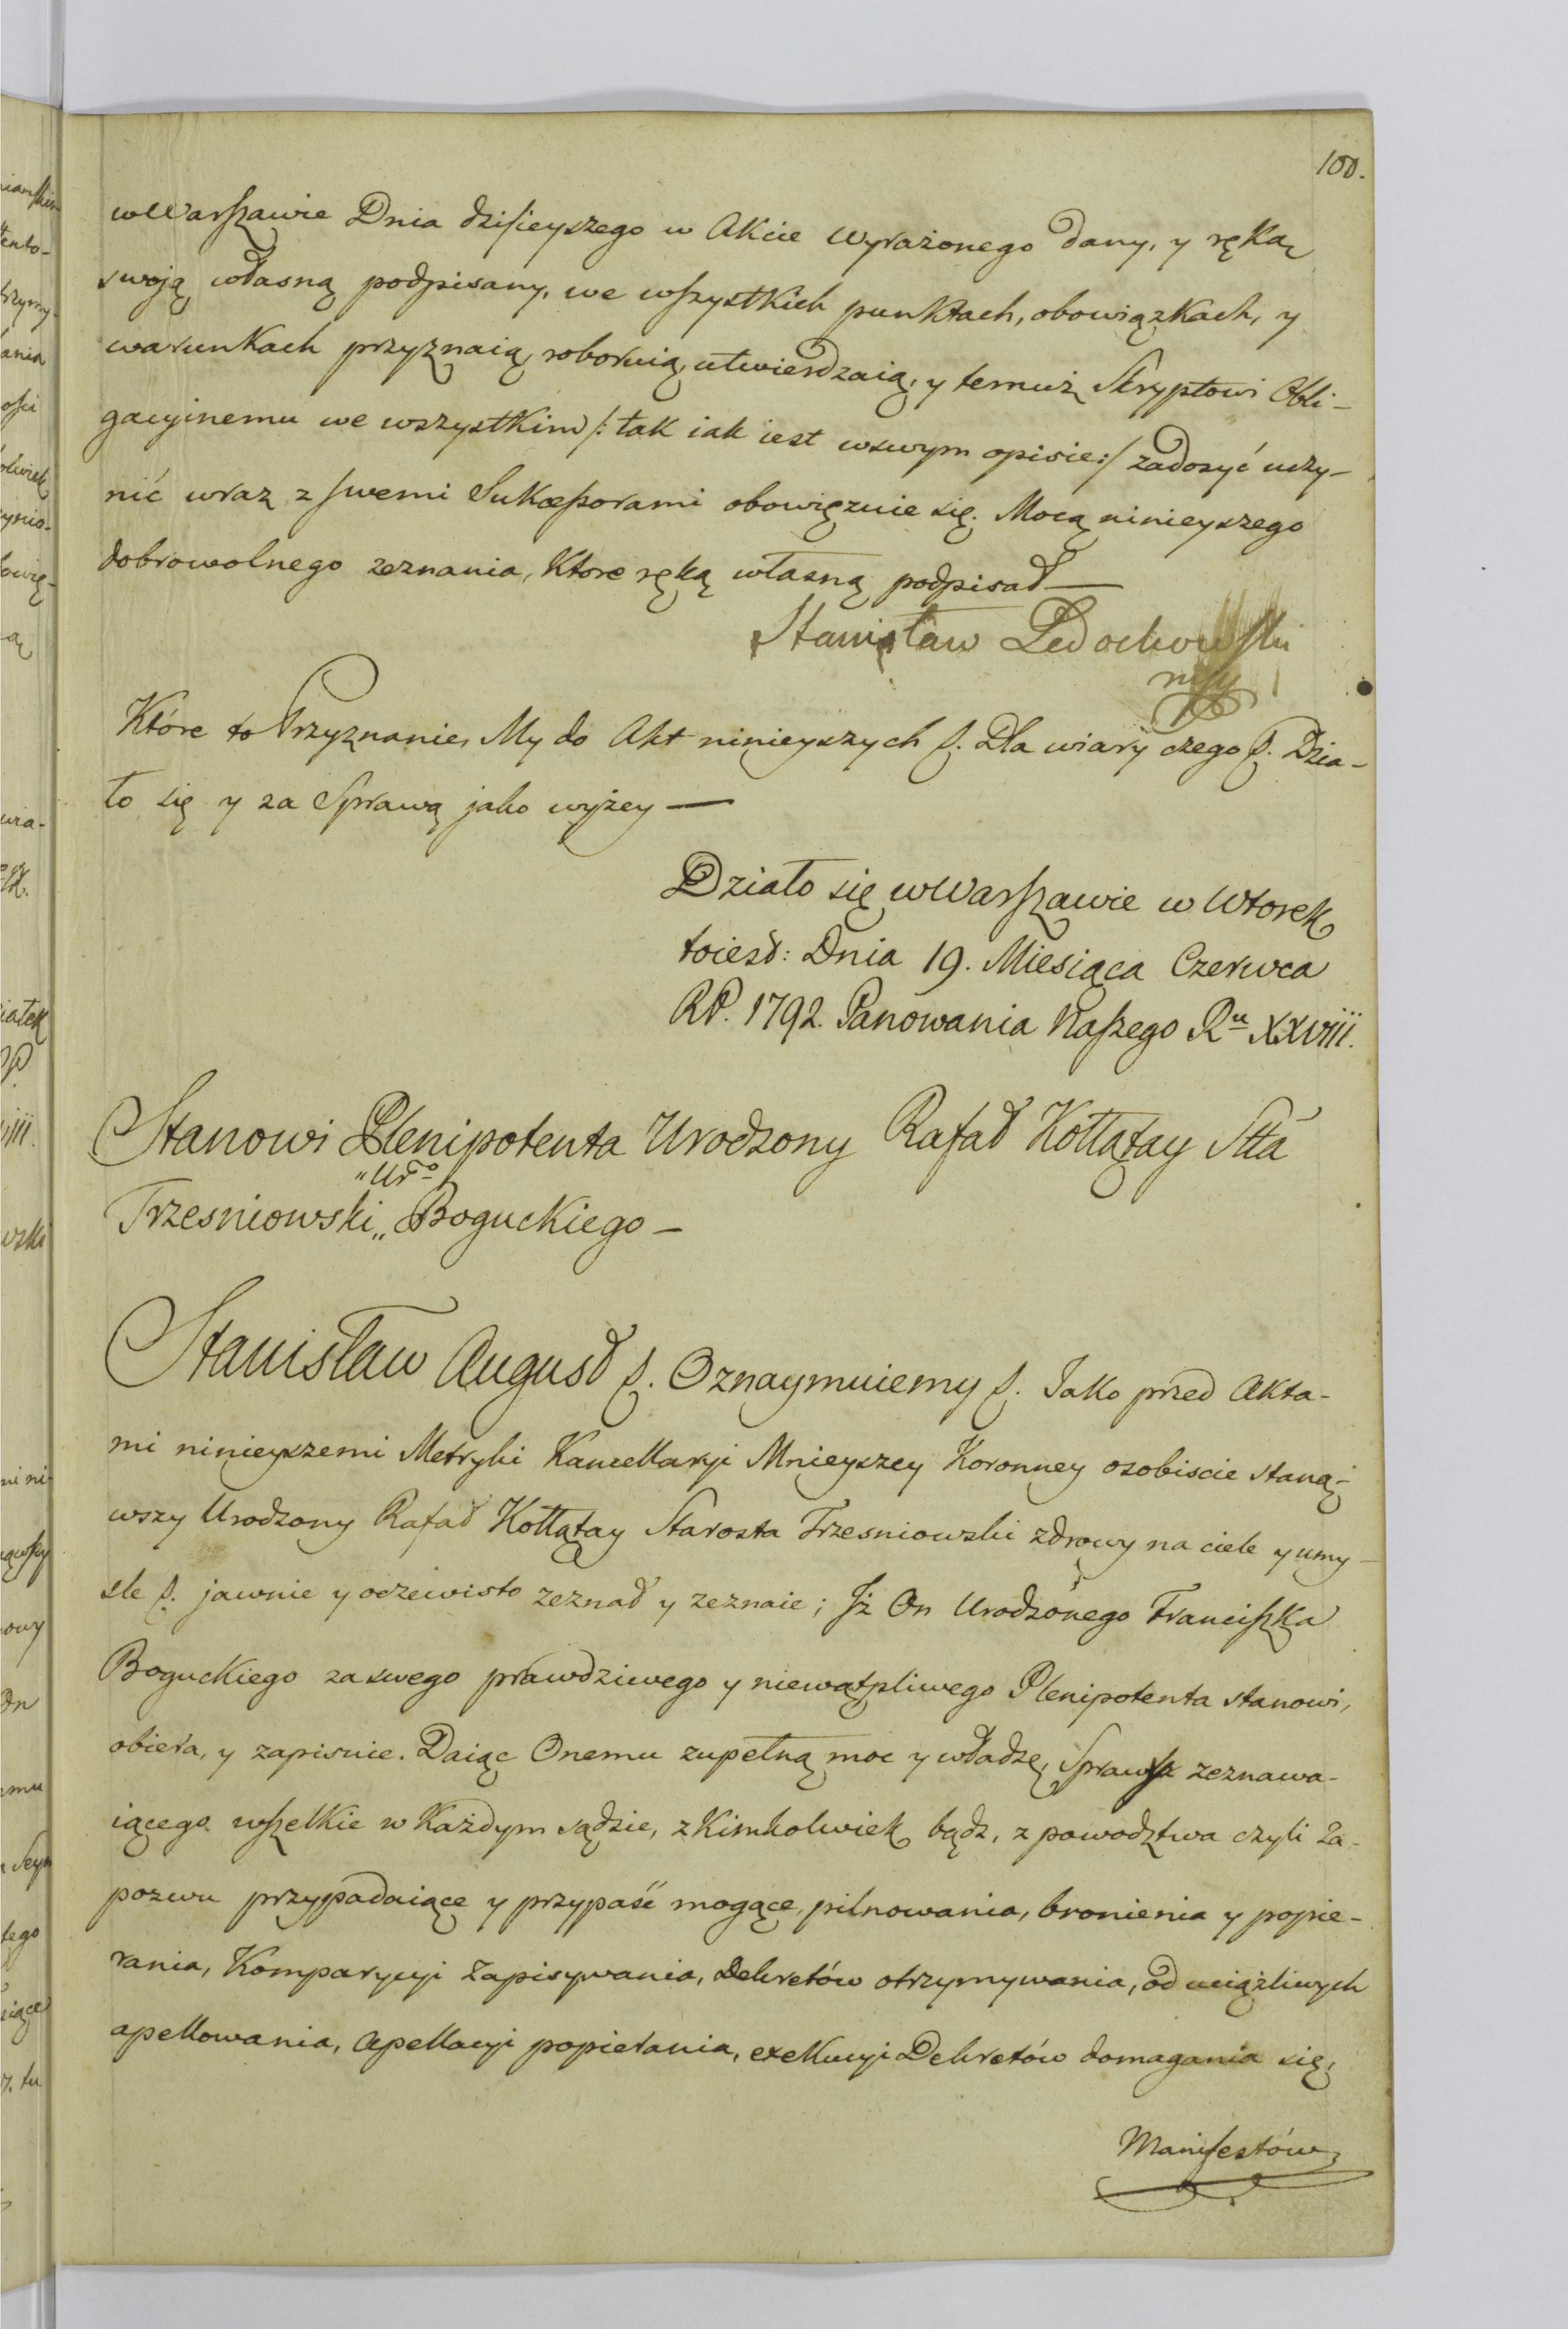 100.
w Warszawie Dnia dzisieyszego w Akcie wyrażonego dany, y ręką
swoją własną podpisany, we wszystkich punktach, obowiązkach, y
warunkach przyznaią, roboruią, utwierdzaią, y temuż Skryptowi Obli-
gacyinemu we wszystkim /: tak iak iest w swym opisie :/ zadosyć uczy-
nić wraz z swemi Sukcessorami obowięzuie się. Mocą ninieyszego
dobrowolnego zeznania, które ręką własną podpisał —
Stanisław Ledochowski
mp
Które to Przyznanie, My do Akt ninieyszych &. Dla wiary czego &. Dzia-
ło się y za Sprawą jako wyżey —
Działo się w Warszawie w Wtorek
toiest: Dnia 19. Miesiąca Czerwca
RP. 1792. Panowania Naszego Ru XXVIII.
Stanowi Plenipotenta Urodzony Rafał Kołłątay Stta
"Uro
Trzesniowski „ Boguckiego —
Stanisław August &. Oznaymuiemy &. Jako przed Akta-
mi ninieyszemi Metryki Kancellaryi Mnieyszey Koronney osobiscie staną-
wszy Urodzony Rafał Kołłątay Starosta Trzesniowski zdrowy na ciele y umy-
sle &. jawnie y oczewisto zeznał y zeznaie; Iż On Urodzonego Franciszka
Boguckiego za swego prawdziwego y niewątpliwego Plenipotenta stanowi,
obiera, y zapisuie. Daiąc Onemu zupełną moc y władzę, Spraw zeznawa-
iącego wszelkie w każdym sądzie, z kimkolwiek bądz, z powodztwa czyli za-
pozwu przypadaiące y przypaść mogące, pilnowania, bronienia y popie-
rania, Komparycyi zapisywania, Dekretów otrzymywania, od uciążliwych
apellowania, Apellacyi popierania, exekucyi Dekretów domagania się,
Manifestów